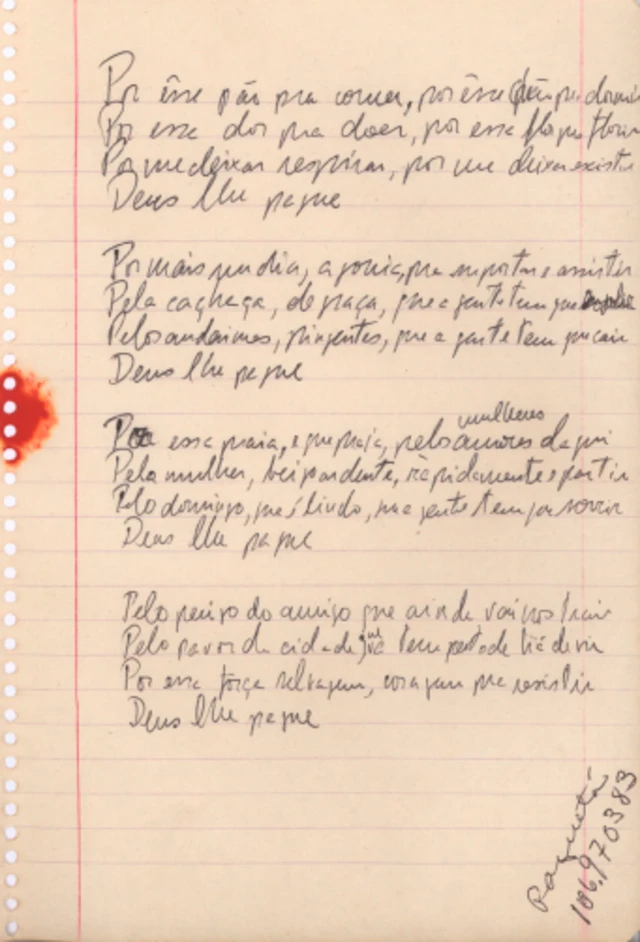 Por êsse pão pra comer, por êsse chão pra dormir
Por essa dor pra doer, por essa flor pra florir
Por me deixar respirar, por me deixar existir
Deus lhe pague
Por mais um dia, agonia, pra suportar e assistir
Pela cachaça, de graça, que a gente tem que engolir
Pelos andaimes, pingentes, que a gente tem que cair
Deus lhe pague
essa praia, e pelos amores daqui
mulheres
Pela mulher, rapidamente e partir
Pelo domingo, que é lindo, pra gente tem que sorrir
Deus lhe pague
Pelo perigo do amigo que ainda vai nos trair
Pelo pavor da cidade, tempestade
Por essa força selvagem, coragem pra resistir
Deus lhe pague
Paquetá
106.970383